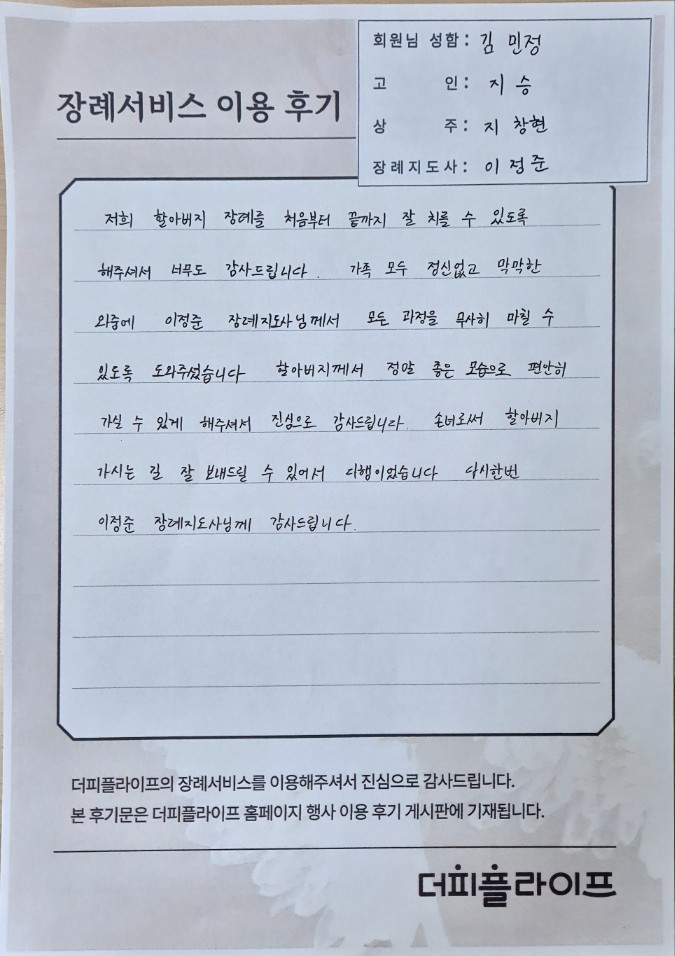 회원님 성함 : 김민정
고 인 : 지승
상 주 : 지창현
장례지도사 : 이정준
장례서비스 이용 후기
저희 할아버지 장례를 처음부터 끝까지 잘 치를 수 있도록
해주셔서 너무도 감사드립니다. 가족 모두 정신없고 막막한
와중에 이정준 장례지도사님께서 모든 과정을 무사히 마칠 수
있도록 도와주셨습니다 할아버지께서 정말 좋은 모습으로 편안히
가실 수 있게 해주셔서 진심으로 감사드립니다. 손녀로써 할아버지
가시는 길 잘 보내드릴 수 있어서 다행이었습니다 다시한번
이정준 장례지도사님께 감사드립니다.
더피플라이프의 장례서비스를 이용해주셔서 진심으로 감사드립니다.
본 후기문은 더피플라이프 홈페이지 행사 이용 후기 게시판에 기재됩니다.
더피플라이프